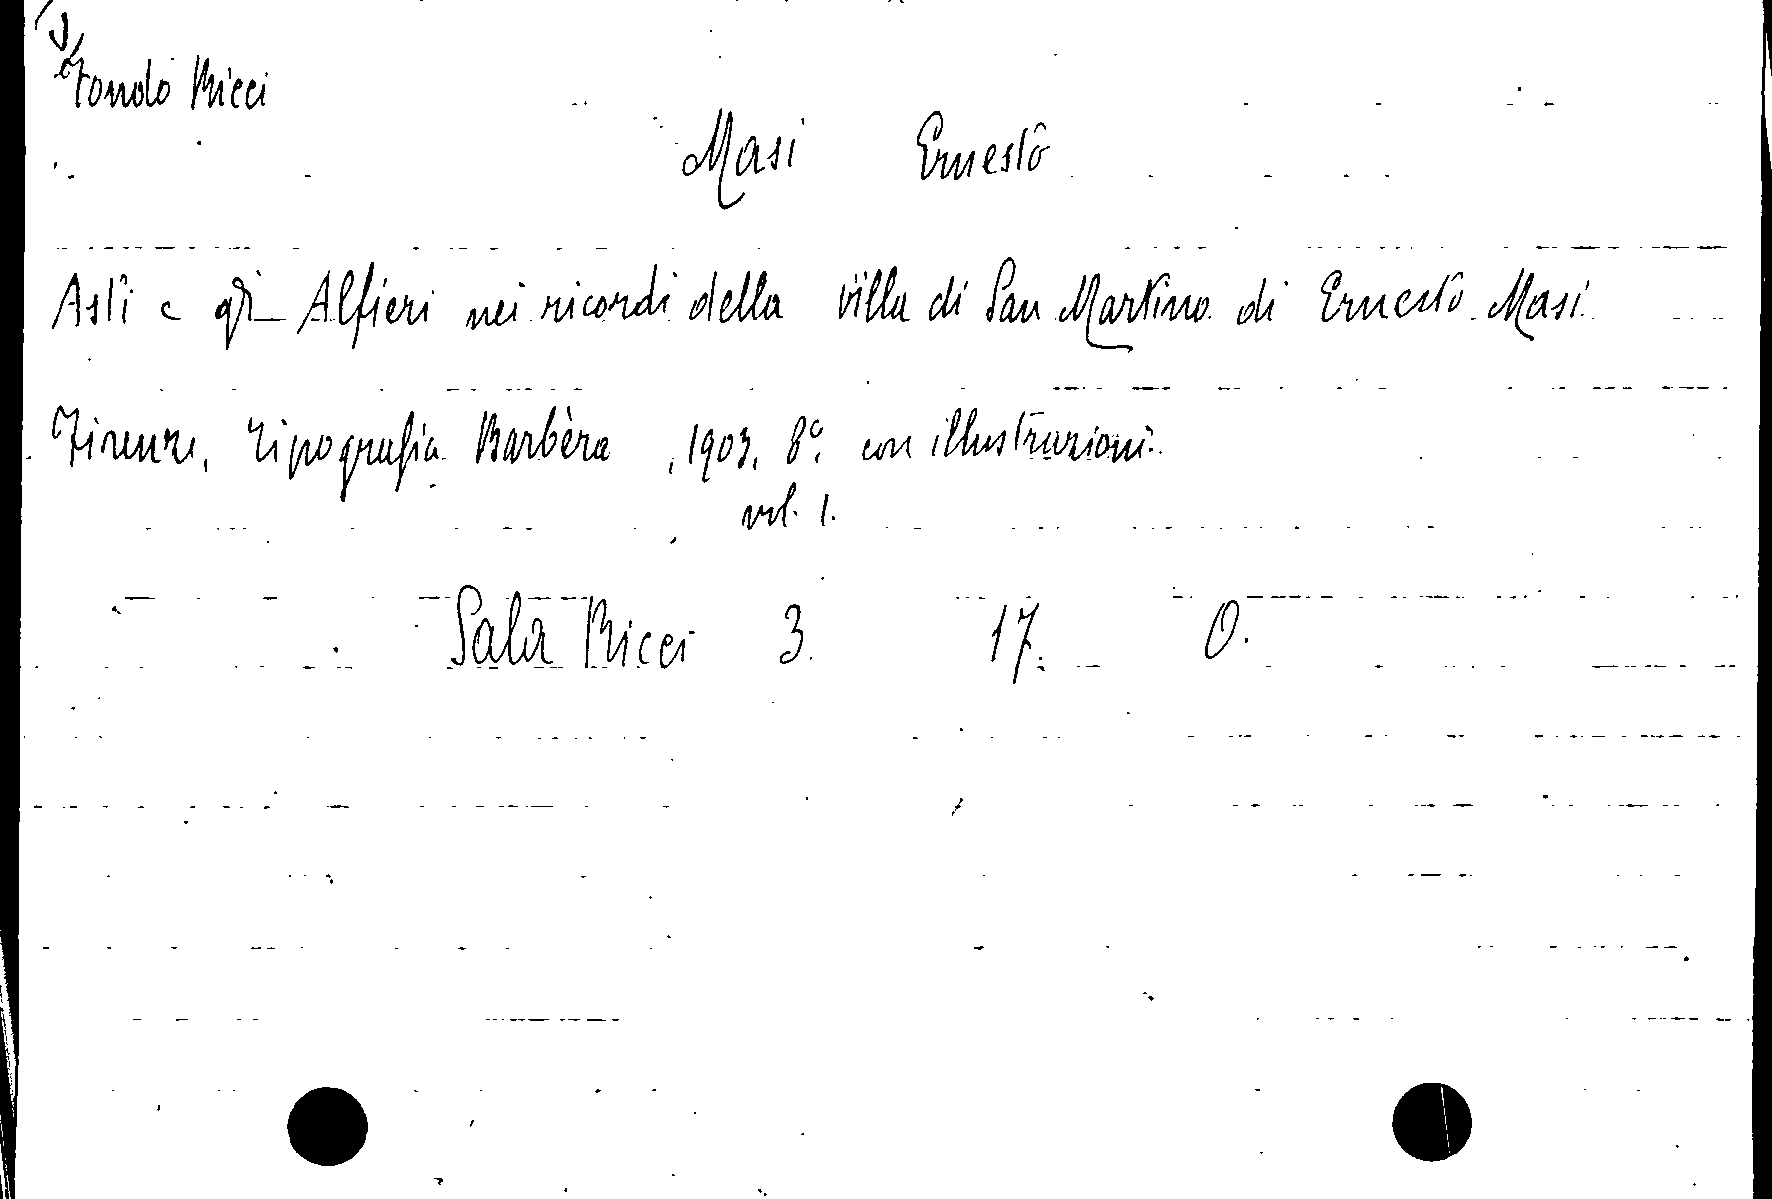 Fondo Ricci
Masi Ernesto
Asti e gli Alfieri nei ricordi della villa di San Martino di Ernesto Masi
Firenze, Tipografia Barbèra, 1903. 8° con illustrazioni.
vol. 1.
Sala Ricci 3. 17. O.